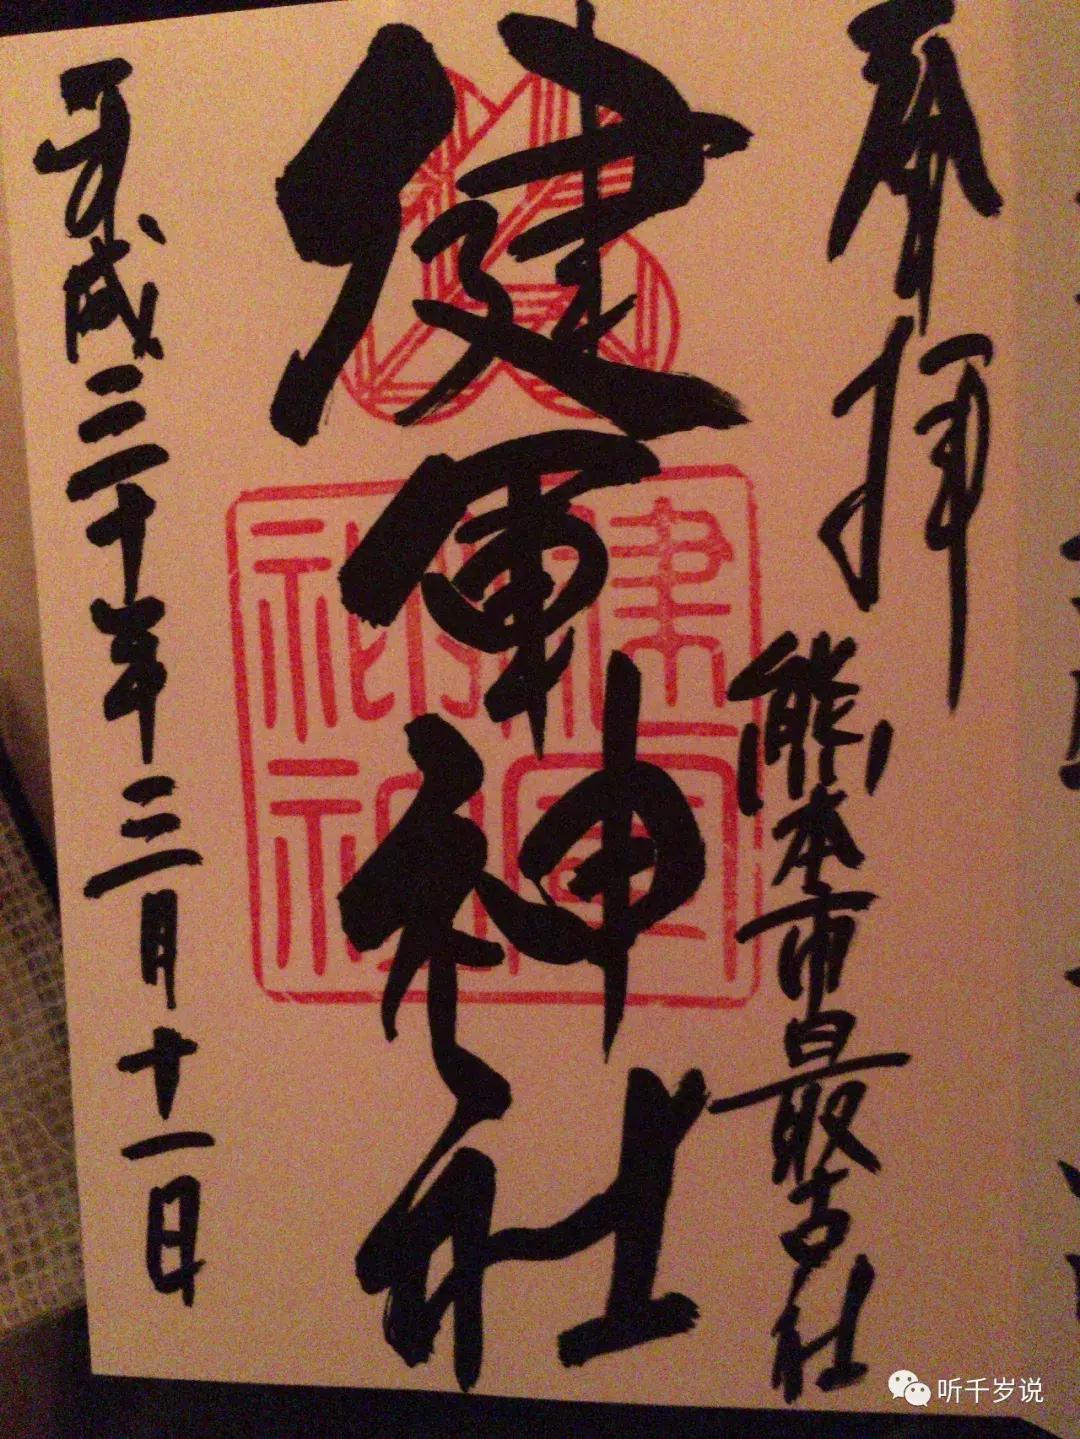 奉拝
熊本市最古社
健軍神社
平成三十年三月十一日
听千岁说